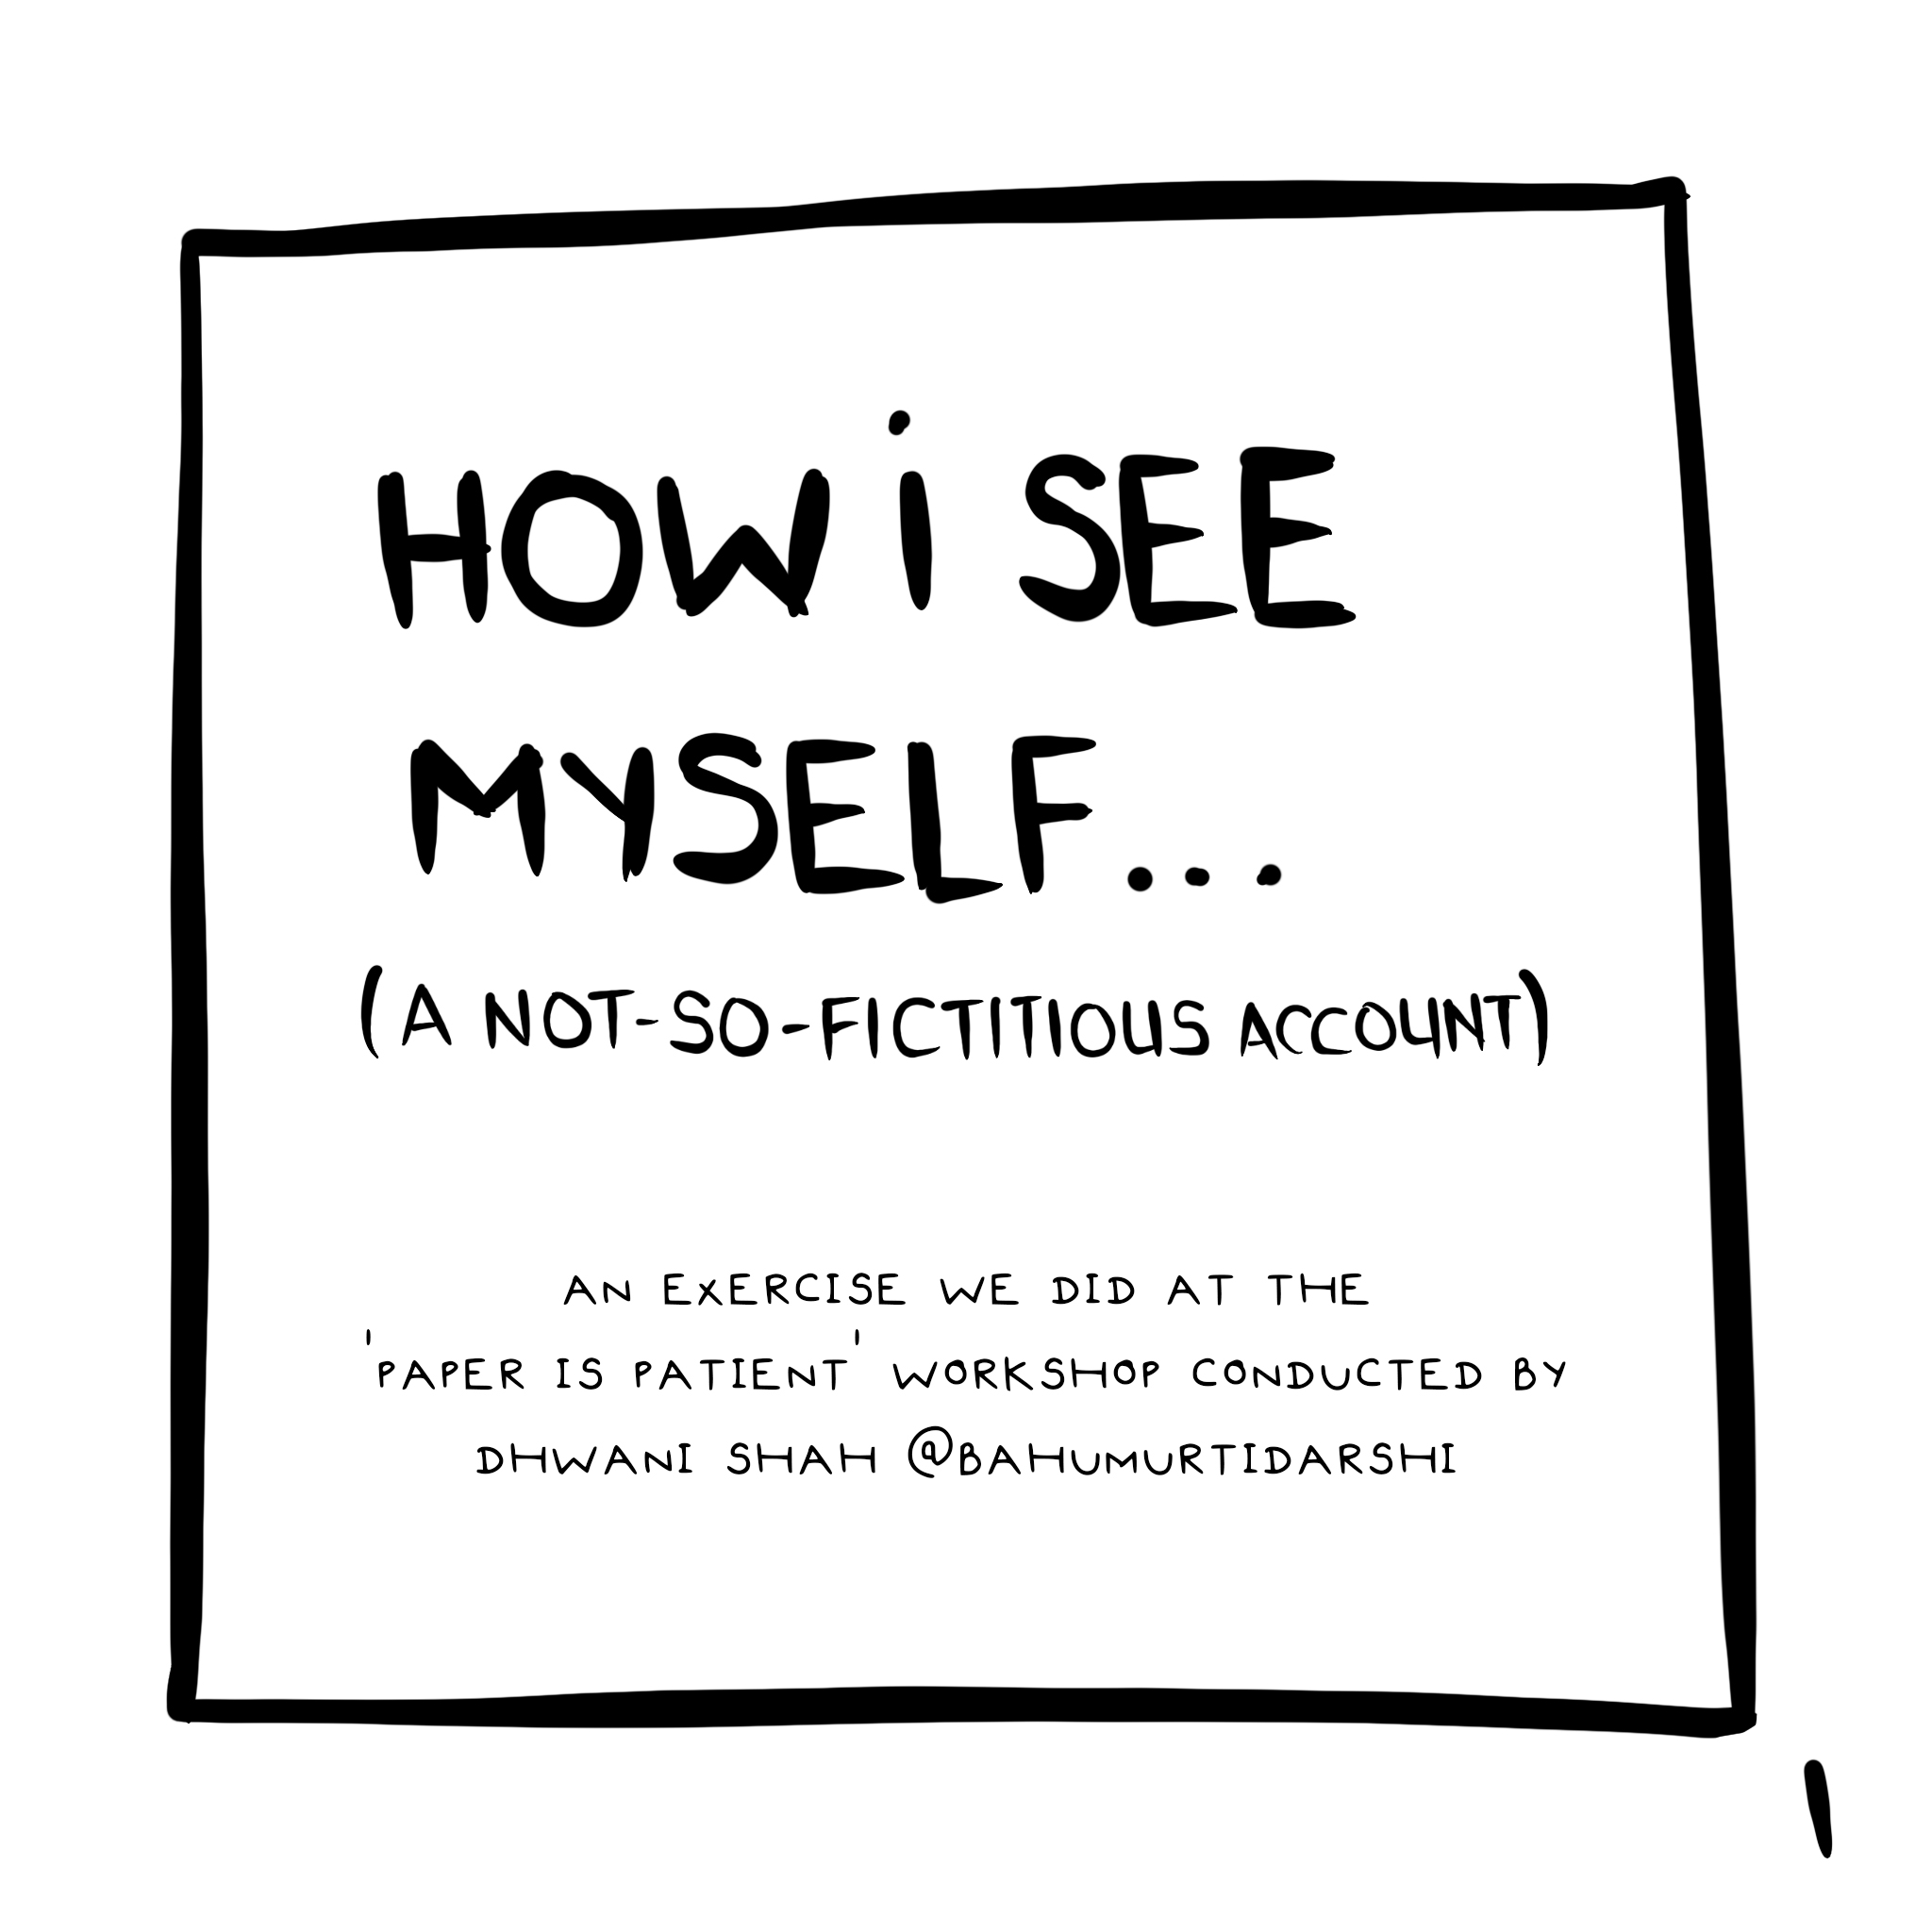 HOW i SEE
MYSELF...
(A NOT-SO-FICTITIOUS ACCOUNT)
AN EXERCISE WE DID AT THE
'PAPER IS PATIENT' WORKSHOP CONDUCTED BY
DHWANI SHAH @BAHUMURTIDARSHI
1